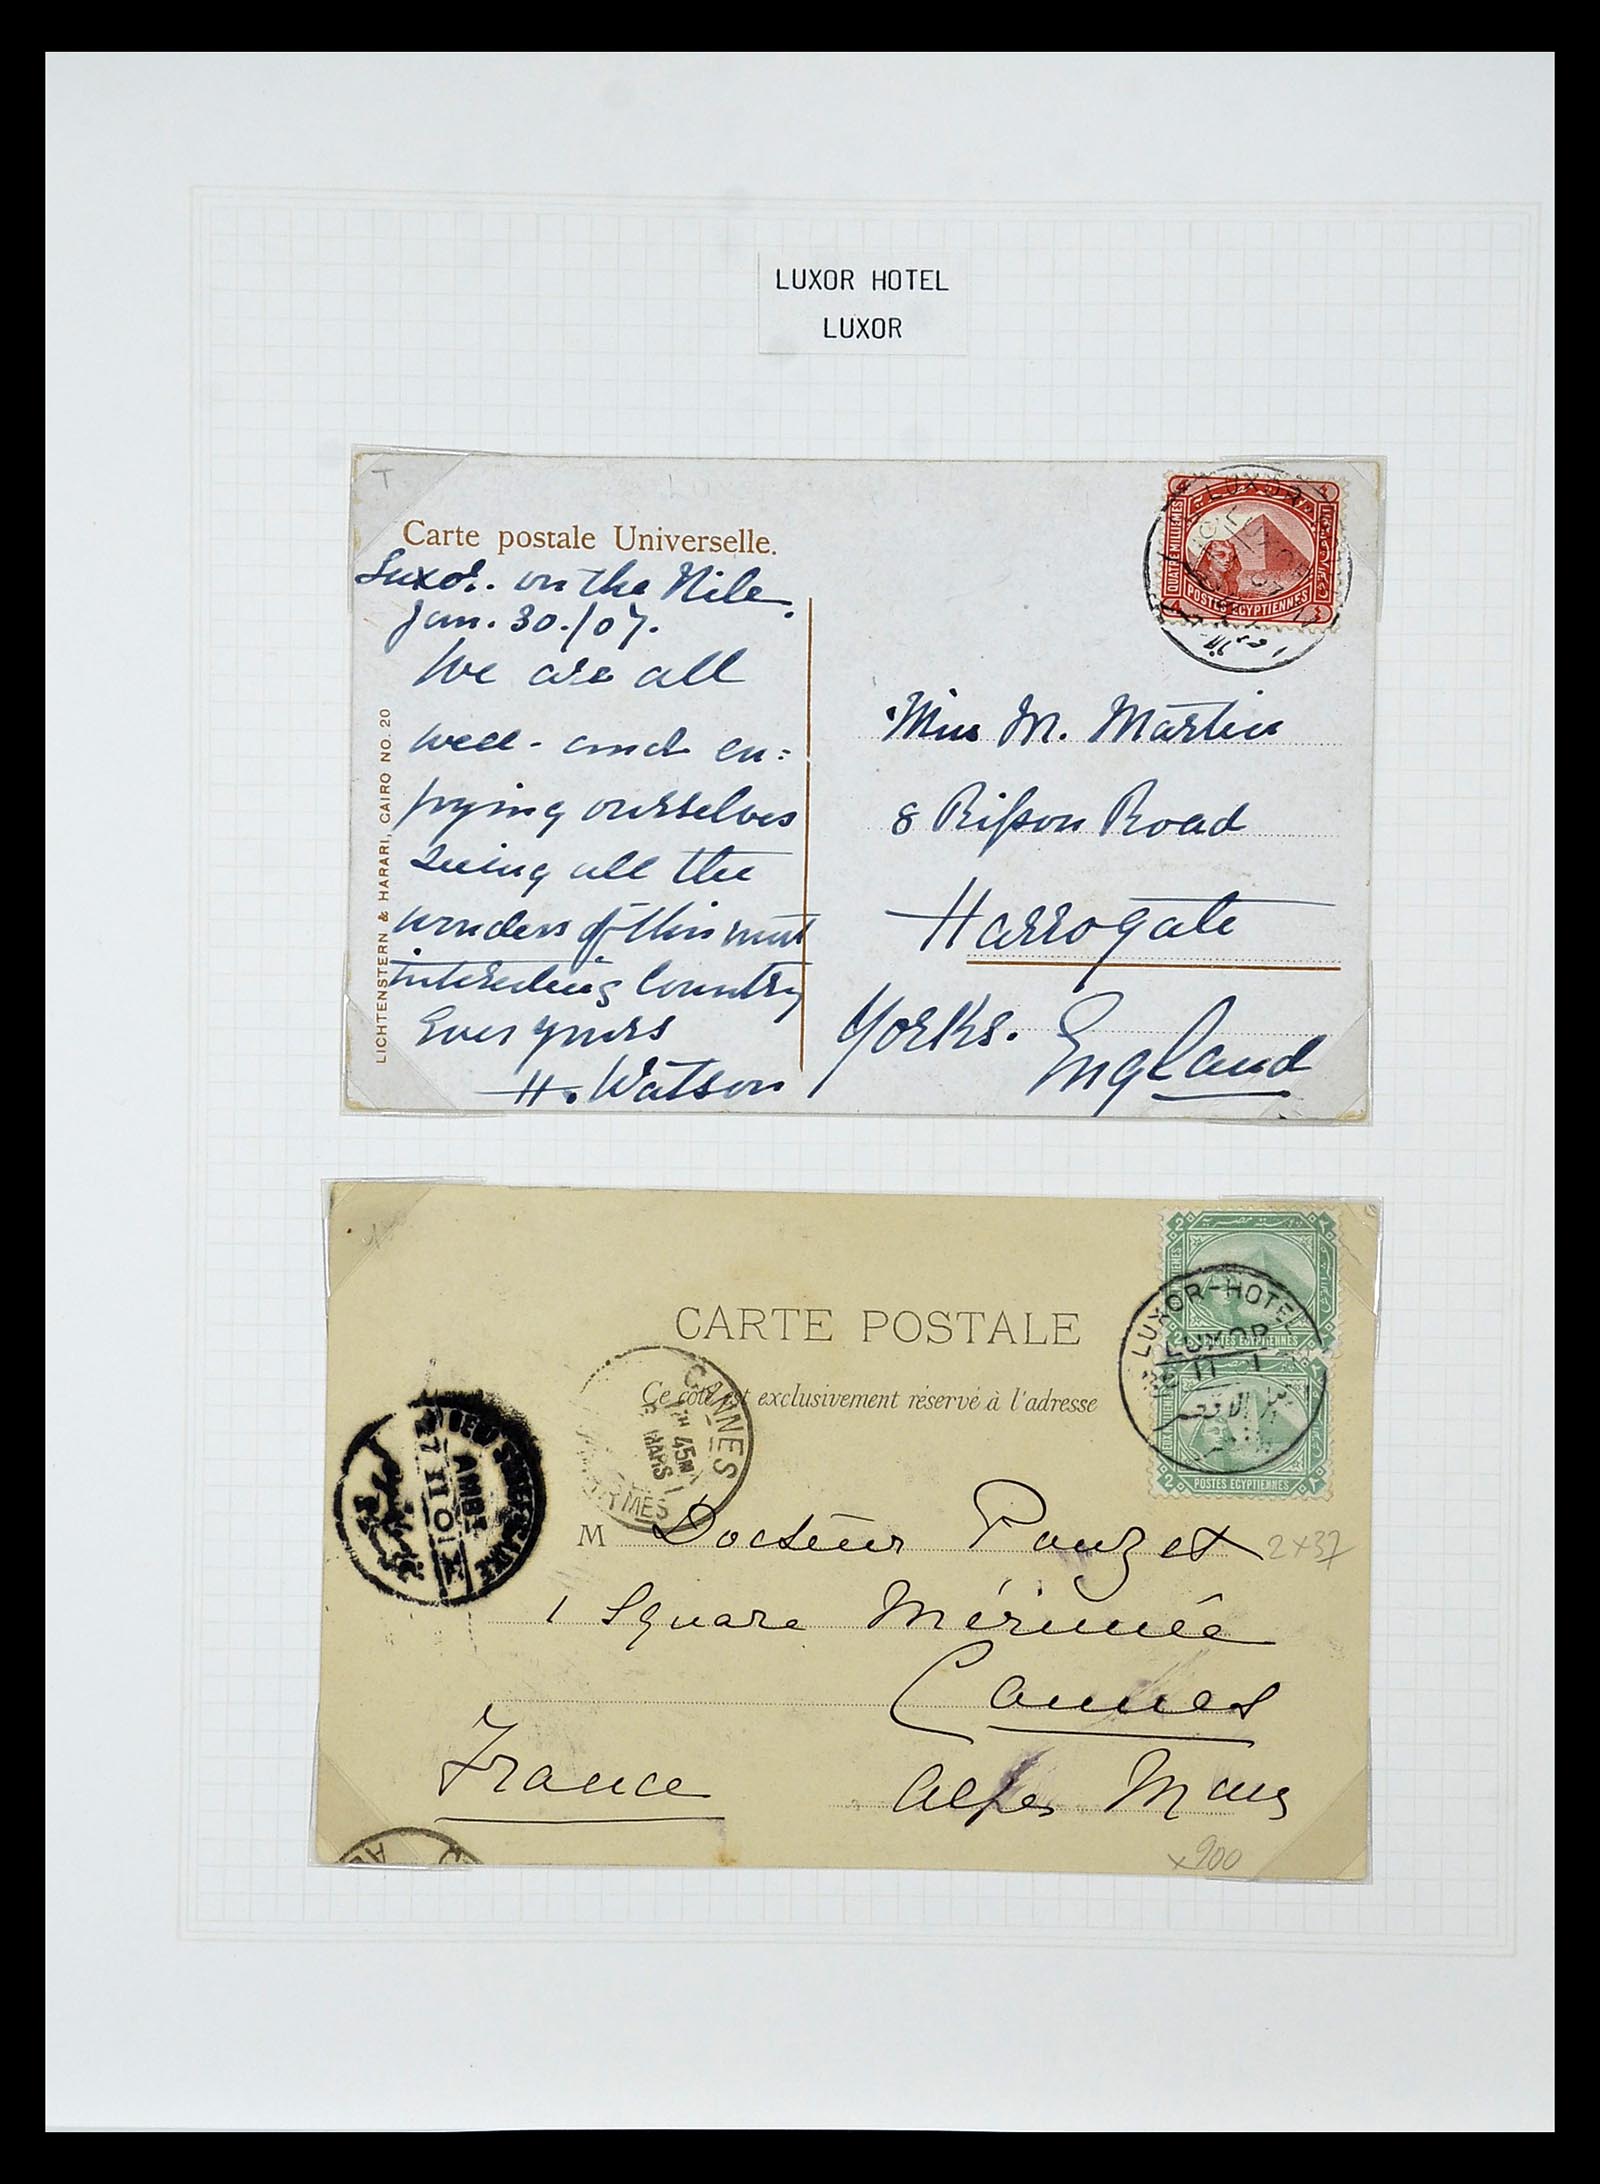 LUXOR HOTEL
LUXOR
T
Carte postale Universelle.
Luxor. on the Nile.
Jan. 30./07.
We are all
well - and en=
joying ourselves
Seeing all the
wonders of this most
interesting Country
Ever yours
H. Watson
LICHTENSTERN & HARARI, CAIRO NO. 20
LUXOR
QUATRE MILLIEMES
POSTES EGYPTIENNES
4
Miss M. Martin
8 Ripon Road
Harrogate
Yorks.
England
2
POSTES EGYPTIENNES
2
POSTES EGYPTIENNES
LUXOR-HOTEL
LUXOR
11 I
CARTE POSTALE
Ce côté est exclusivement réservé à l'adresse
CANNES
45
MARS
AMBT
M Docteur Pouzet
2x37
1 Square Mérimée
Cannes
France
Alpes Mares
x900